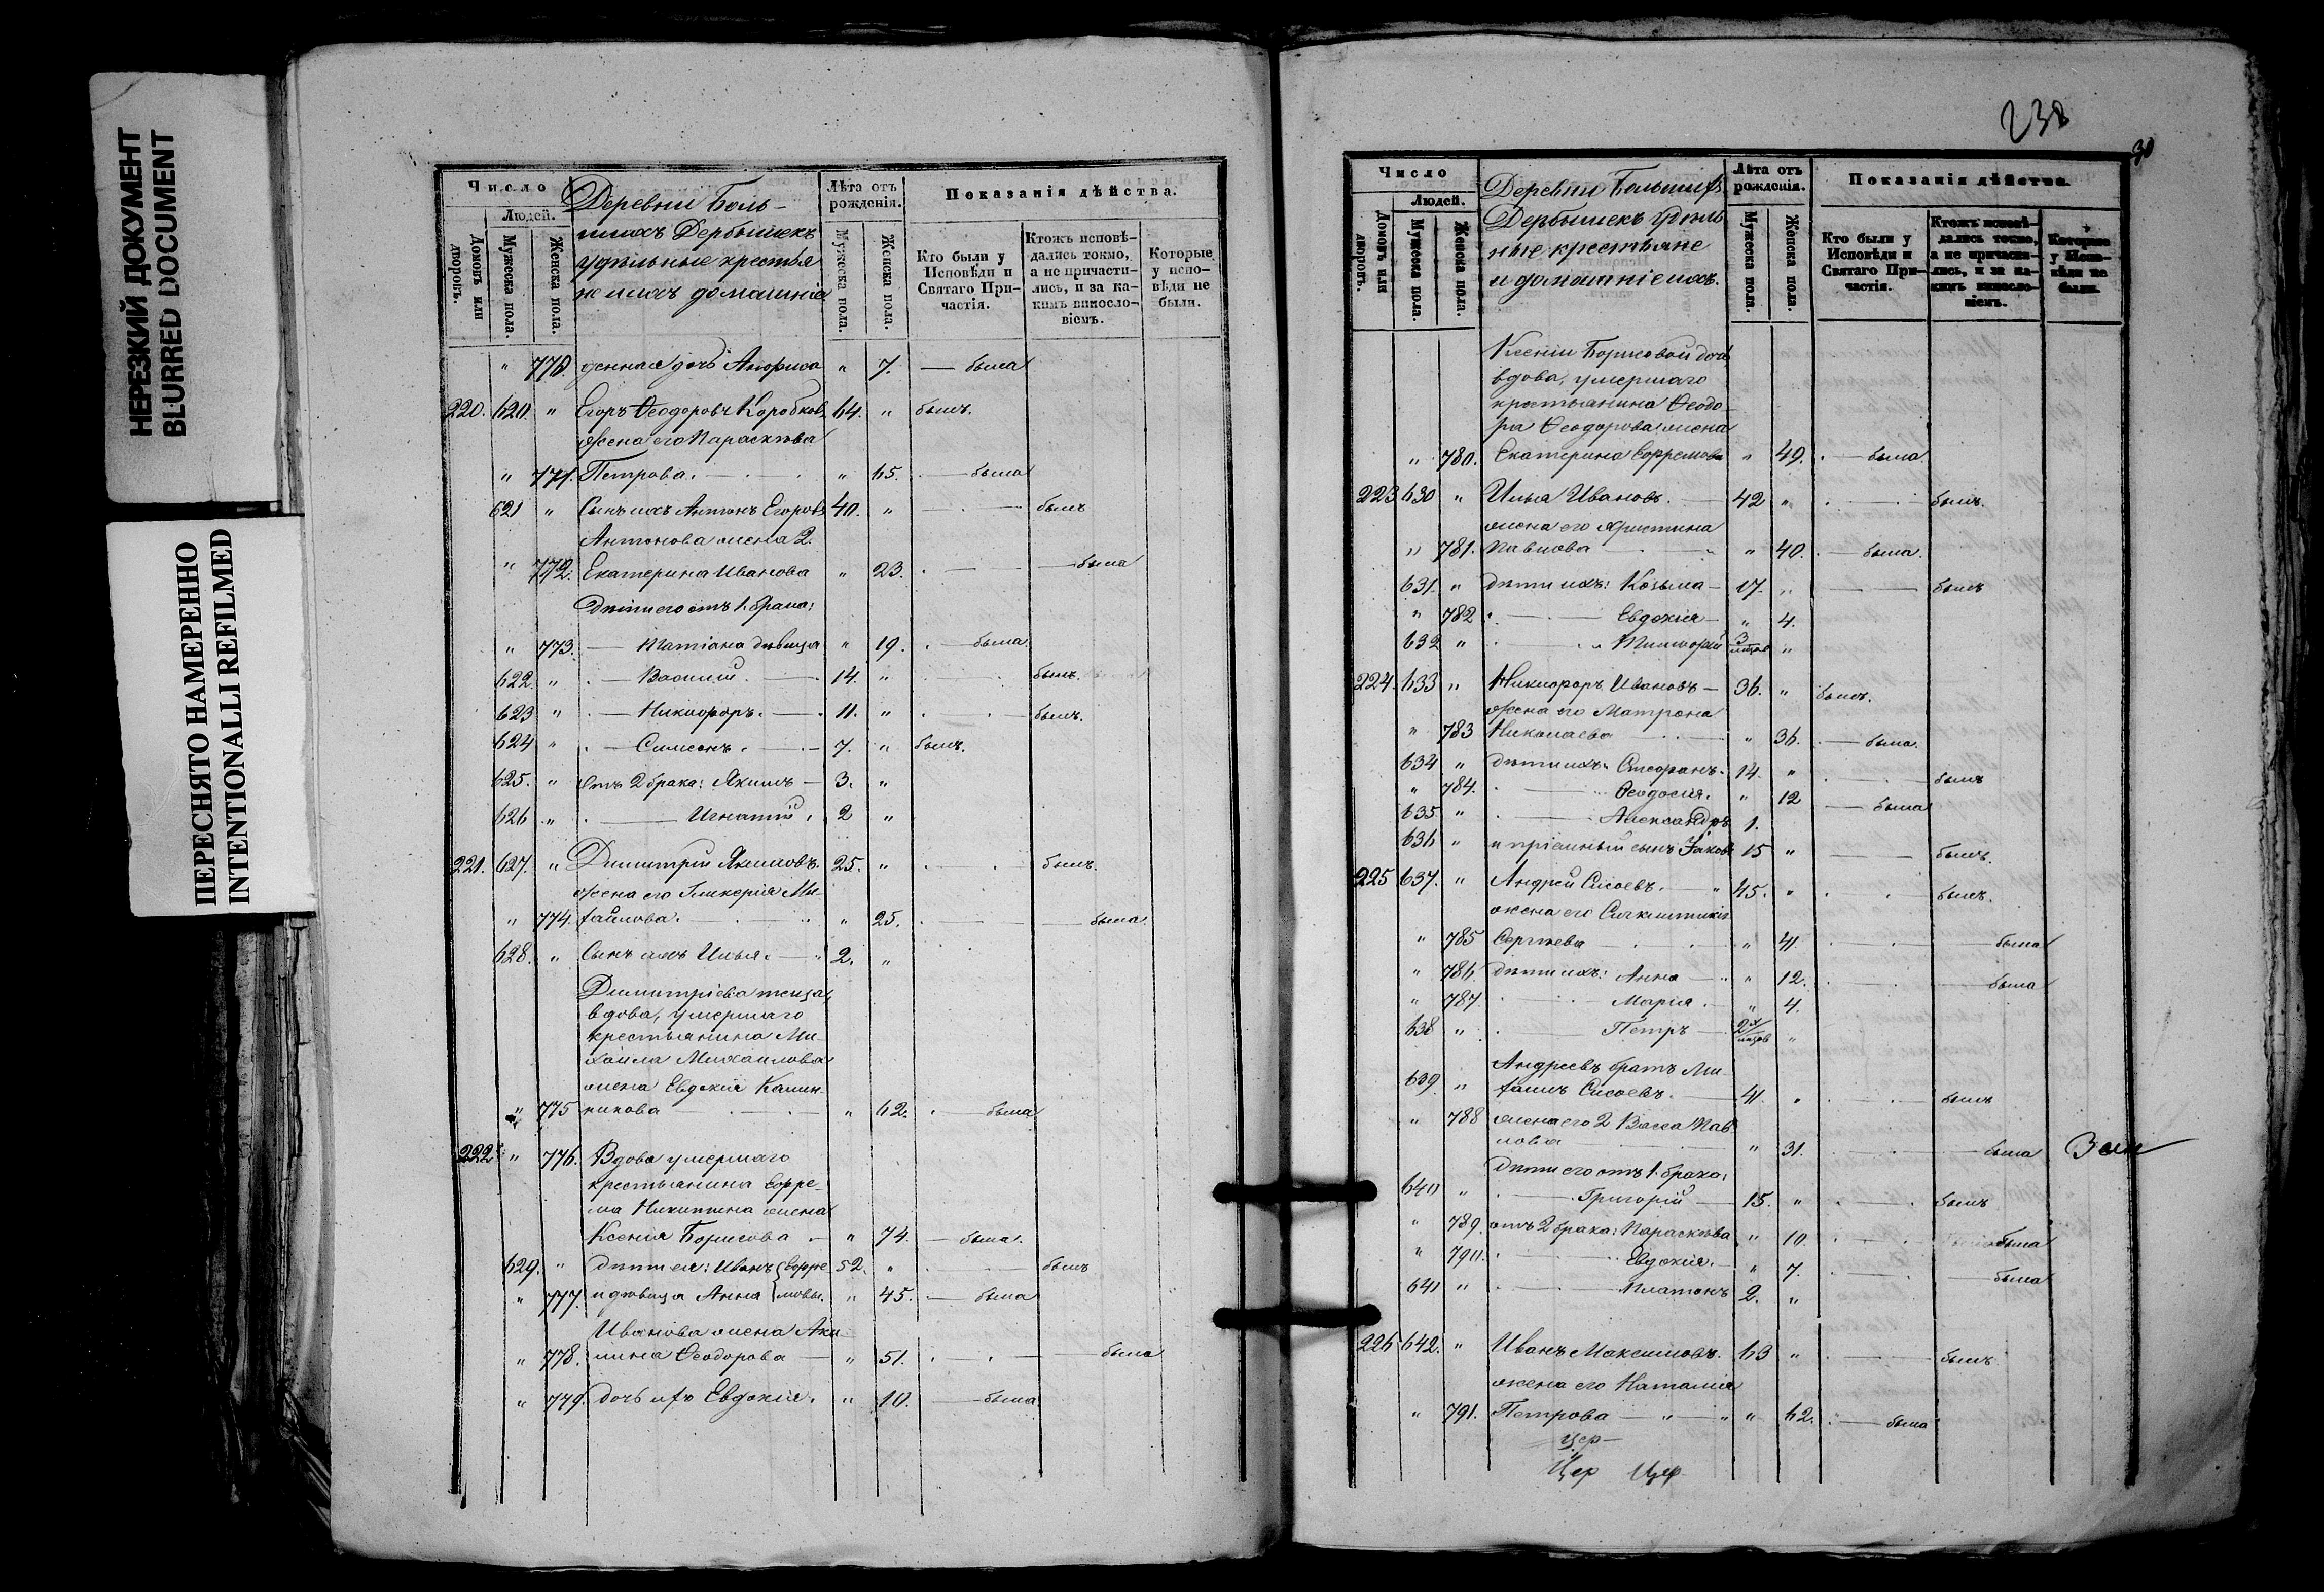 НЕРЕЗКИЙ ДОКУМЕНТ
BLURRED DOCUMENT
ПЕРЕСНЯТО НАМЕРЕННО
INTENTIONALLI REFILMED
Число
Людей.
Домовъ или дворовъ.
Мужеска пола.
Женска пола.
Деревни Боль-
шихъ Дербышекъ
удѣльные крестья
не ихъ домашніе
Лѣта отъ рожденія.
Мужеска пола.
Женска пола.
Показанія дѣйства.
Кто были у Исповѣди и Святаго При-частія.
Ктожъ исповѣ-дались токмо, а не причасти-лись, и за ка-кимъ винослo-віемъ.
Которые у испо-вѣди не были.
" 770. денная дочь Анфиса " 7. — была
220. 620. " Егоръ Ѳеодоровъ Коробковъ 64. " былъ.
жена его Параскѣва
" 771. Петрова. " 65. — была
621 " Сынъ ихъ Антонъ Егоровъ 40. " былъ
Антонова жена 2.
" 772. Екатерина Иванова " 23. — была
Дѣти его отъ 1. брака:
" 773. — Татіана дѣвица " 19. — была
622. " — Василій. 14. " былъ.
623 " — Никифоръ. 11. " былъ.
624 " — Симеонъ. 7. " былъ.
625. " отъ 2 брака: Якимъ — 3. "
626 " — Игнатій 2 "
221. 627. " Димитрій Якимовъ 25. " былъ.
жена его Гликерія Ми-
" 774. хайлова. " 25. — была
628. " Сынъ ихъ Илья. 2. "
Димитріева теща,
вдова, умершаго
крестьянина Ми-
хаила Михаилова
жена Евдокія Калин-
" 775 никова " 62. — была
222. " 776. Вдова умершаго
крестьянина Ефре-
ма Никитина жена
Ксенія Борисова " 74. — была.
629. " дѣти ея: Иванъ Ефре 52. " былъ
" 777. и дѣвица Анна мовы. " 45. — была
Иванова жена Аки-
" 778. лина Ѳеодорова " 51. — была
" 779. дочь ихъ Евдокія. " 10. — была
238
30
Число
Людей.
Домовъ или дворовъ.
Мужеска пола.
Женска пола.
Деревни Большихъ
Дербышекъ удѣль
ные крестьяне
и домашніе ихъ.
Лѣта отъ рожденія.
Мужеска пола.
Женска пола.
Показанія дѣйства.
Кто были у Исповѣди и Святаго При-частія.
Ктожъ исповѣ-дались токмо, а не причасти-лись, и за ка-кимъ винослo-віемъ.
Которые у Испо-вѣди не были.
Ксеніи Борисовой дочь,
вдова, умершаго
крестьянина Ѳеодо-
ра Ѳеодорова жена
" 780. Екатерина Ефремова " 49. — была.
223 630 " Илья Ивановъ. 42 " былъ.
жена его Христина
" 781. Павлова " 40. — была.
631. " дѣти ихъ: Козьма — 17. " былъ
" 782 Евдокія — " 4.
632 " 3 "
224. 633 " Никифоръ Ивановъ — 36. " былъ.
жена его Матрона
" 783 Николаева " 36. — была.
634 " дѣти ихъ: Стефанъ. 14. " былъ
" 784. Ѳеодосія. " 12 — была
635 " Александръ 1.
636 " и пріемный сынъ Іаковъ 15 " былъ.
225 637. " Андрей Сисоевъ. 45. " былъ.
жена его
" 785 Сергѣева " 41. была
" 786 дѣти ихъ: Анна — " 12. — была
" 787. Марія. " 4.
638 " Петръ — "
Андреевъ братъ Ми
639. " хаилъ Сисоевъ. 41. " былъ
" 788 жена его 2 Васса Пав
лова " 31. — была
Дѣти его отъ 1. брака:
640 " Григорій — 15. " былъ
" 789. отъ 2 брака: Параскѣва " 10. была
" 790. Евдокія. " 7. — была
641 " Платонъ 2. "
226 642. " Иванъ Максимовъ. 63 " былъ
жена его Наталія
" 791. Петрова " 62. — была
Цер
Цер Цер